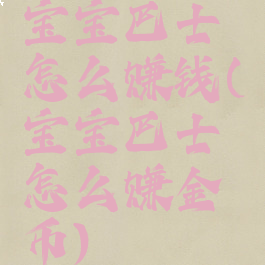 宝宝巴士
怎么赚钱(
宝宝巴士
怎么赚金
币)